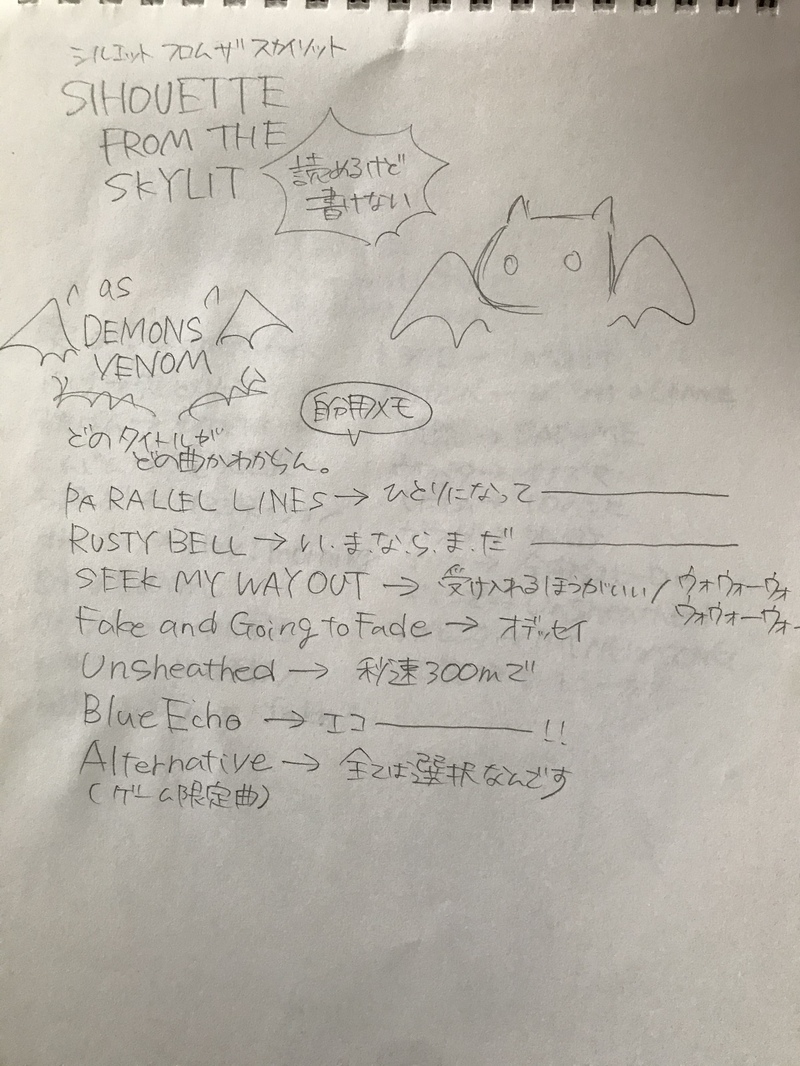 シルエット フロム ザ スカイリット
SIHOUETTE
FROM THE
SKYLIT
読めるけど
書けない
as
DEMONS
VENOM
自分用メモ
どのタイトルが
どの曲かわからん。
PARALLEL LINES→ひとりになって————
RUSTY BELL→い.ま.な.ら.ま.だ ————
SEEK MY WAY OUT → 受け入れるほうがいい/ウォウォーウォ
ウォウォーウォー
Fake and Going to Fade → オデッセイ
Unsheathed → 秒速300mで
Blue Echo → エコ————!!
Alternative → 全ては選択なんです
(ゲーム限定曲)